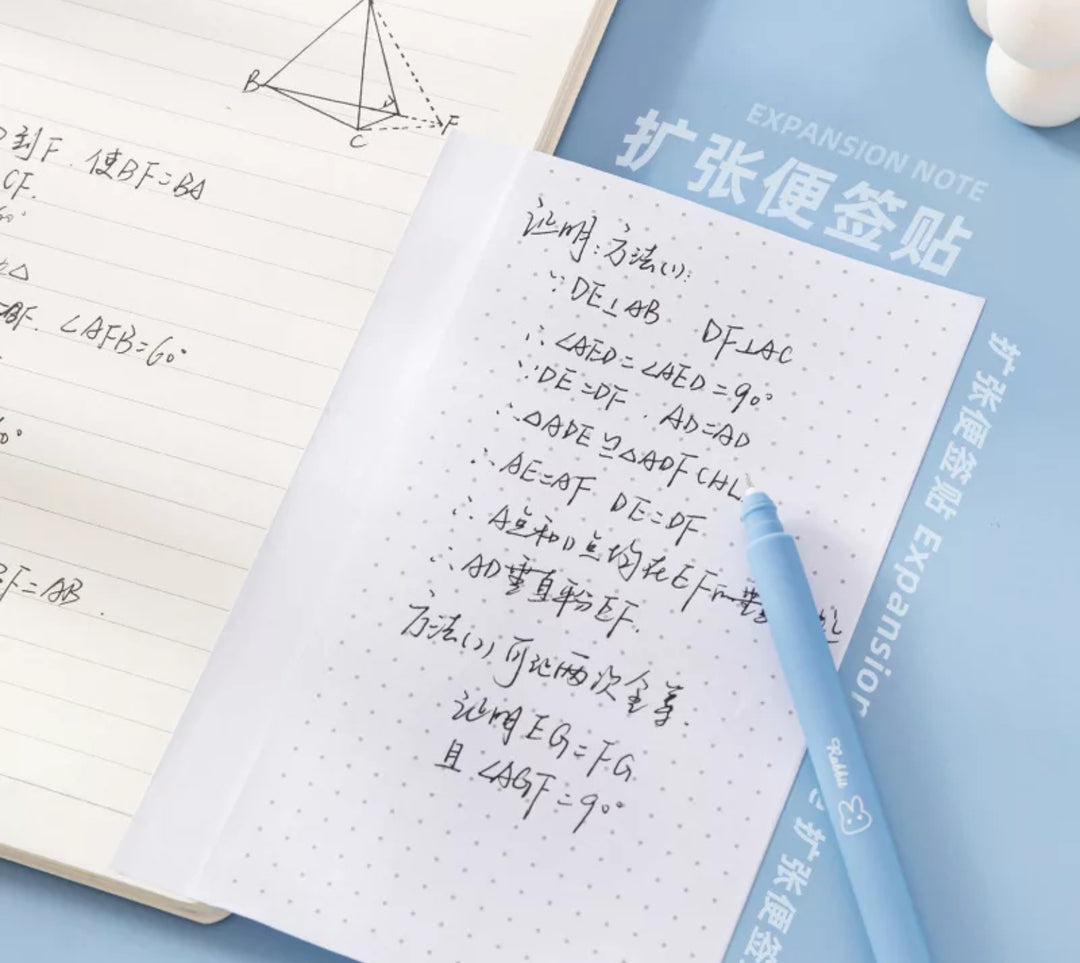 B
C
D
F
D到F.使BF=BA
CF.
60°
△
=BF. ∠AFB=60°
60°
BF=AB.
EXPANSION NOTE
扩张便签贴
证明:方法(1):
∵DE⊥AB DF⊥AC
∴∠AED=∠AED=90°
∵DE=DF.AD=AD
∴△ADE≌△ADF(HL
∴AE=AF DE=DF
∴A点和D点均在EF的垂
∴AD垂直平分EF.
方法(2)可论两次全等.
证明EG=FG
且∠AGF=90°
扩张便签贴 Expansion
扩张便签
Rabbit